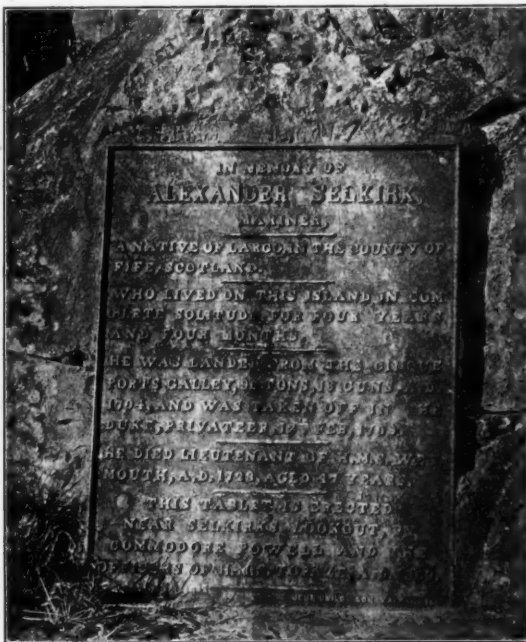 IN MEMORY OF
ALEXANDER SELKIRK,
MARINER,
A NATIVE OF LARGO, IN THE COUNTY OF
FIFE, SCOTLAND.
WHO LIVED ON THIS ISLAND IN COM
PLETE SOLITUDE FOR FOUR YEARS
AND FOUR MONTHS.
HE WAS LANDED FROM THE CINQUE
PORTS GALLEY, TONS, GUNS, A.D.
1704, AND WAS TAKEN OFF IN THE
DUKE, PRIVATEER, 12TH FEB, 1709.
HE DIED LIEUTENANT OF H.M.S.
MOUTH, A.D. AGED 47 YEARS.
THIS TABLET IS ERECTED
NEAR SELKIRKS LOOKOUT,
COMMODORE POWELL AND THE
OFFICERS OF H.M.S.